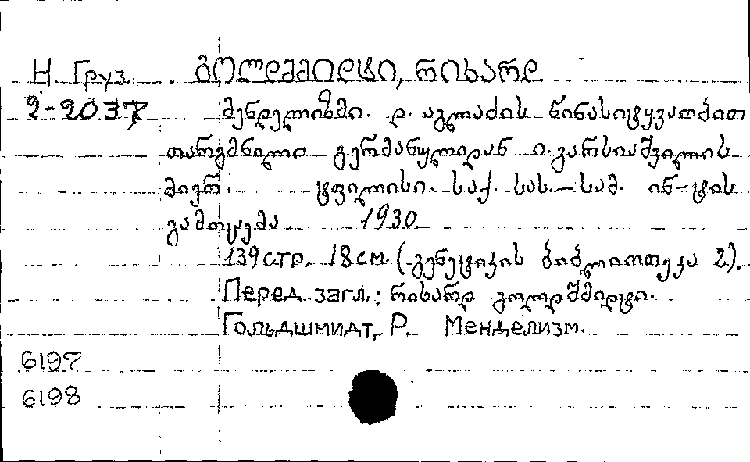 Н. Груз. გოლდშმიდტი, რიხარდ
2-2037 მენდელიზმი. დ. აგლაძის წინასიტყვაობით
თარგმნილი გერმანულიდან ი. გარსიაშვილის
მიერ. ტფილისი. საქ. სას.-სამ. ინ-ტის
გამოცემა 1930
139 стр. 18 см. (გენეტიკის ბიბლიოთეკა 2).
Перед загл.: რიხარდ გოლდშმიდტი.
Гольдшмидт, Р. Менделизм.
6197
6198